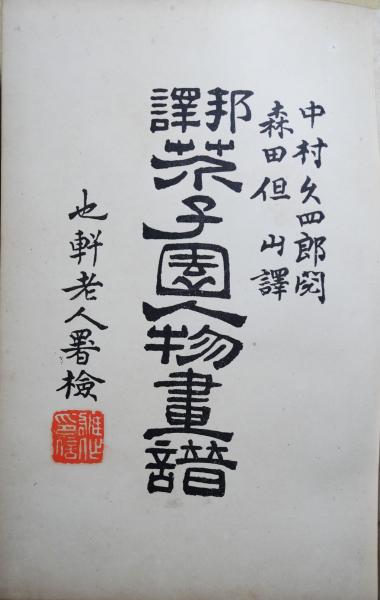 中村久四郎閲
森田但山譯
邦譯
芥子園人物畫譜
也軒老人署檢